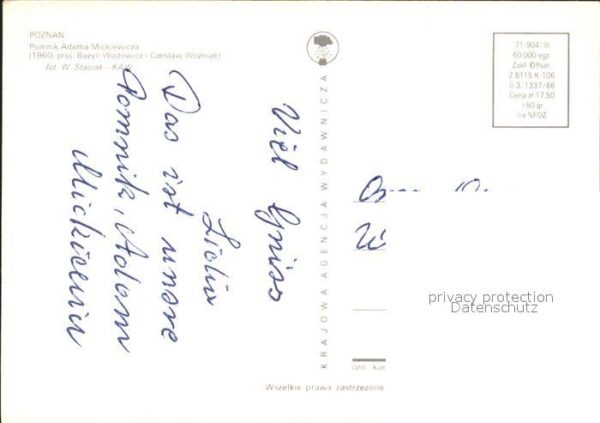 POZNAŃ
Pomnik Adama Mickiewicza
(1960, proj. Bazyli Wojtowicz i Czesław Woźniak)
fot. W. Stasiak - KAW
Das ist unsre
Pomnik, Adam
Mickiewicz
Viel Grüse
KRAJOWA AGENCJA WYDAWNICZA
71-904/III
50 000 egz.
Zakł. Offset.
Z 8115 K-106
II-3/1337/86
Cena zł 17,50
+50 gr
na NFOZ
privacy protection
Datenschutz
ozn. kod
Wszelkie prawa zastrzeżone